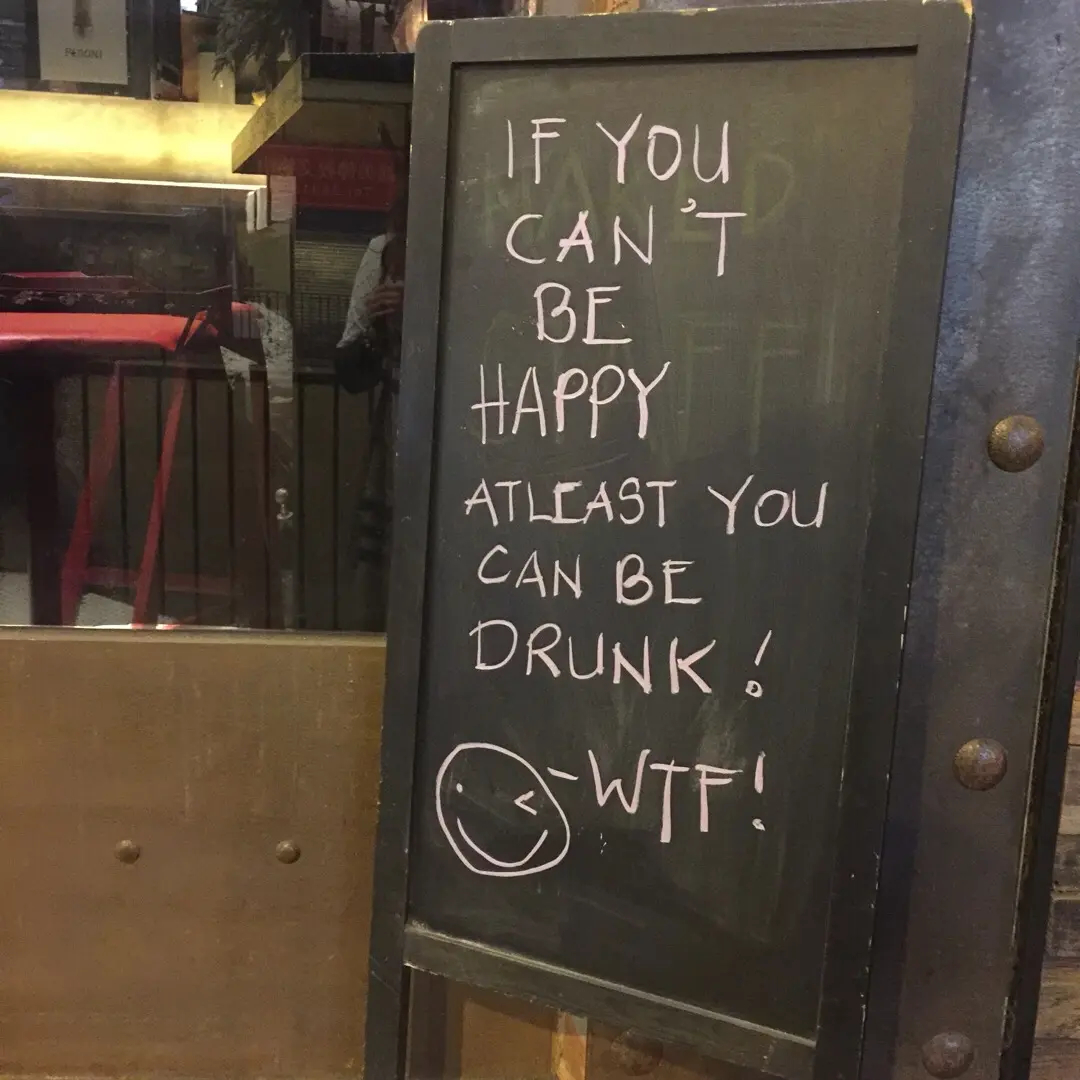 PERONI
IF YOU
CAN'T
BE
HAPPY
ATLEAST YOU
CAN BE
DRUNK!
-WTF!